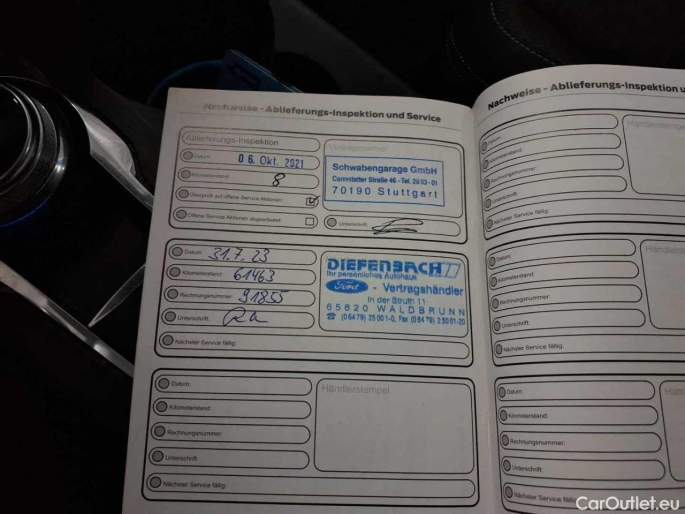 Nachweise - Ablieferungs-Inspektion und Service
Ablieferungs-Inspektion
Datum: 06. Okt. 2021
Kilometerstand: 8
Überprüft auf offene Service Aktionen:
Offene Service Aktionen abgearbeitet:
Händlerstempel
Schwabengarage GmbH
Cannstatter Straße 46 - Tel. 28 03 - 01
70190 Stuttgart
Unterschrift:
Datum: 31.7.23
Kilometerstand: 61463
Rechnungsnummer: 91855
Unterschrift:
Nächster Service fällig:
DIEFENBACH
Ihr persönliches Autohaus
Ford - Vertragshändler
In der Struth 11
65620 WALDBRUNN
☎ (06479)
Datum:
Kilometerstand:
Rechnungsnummer:
Unterschrift:
Nächster Service fällig:
Händlerstempel
Nachweise - Ablieferungs-Inspektion u
Datum:
Kilometerstand:
Rechnungsnummer:
Unterschrift:
Nächster Service fällig:
Händlerstempe
Datum:
Kilometerstand:
Rechnungsnummer:
Unterschrift:
Nächster Service fällig:
Händlerst
Datum:
Kilometerstand:
Rechnungsnummer:
Unterschrift:
Nächster Service fällig:
Händlers
CarOutlet.eu